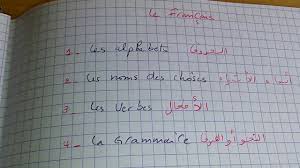 Le Français
1_ Les alphabets الحروف
2_ Les noms des choses أسماء الأشياء
3_ Les Verbes الأفعال
4_ La Grammaire النحو أو الصرف